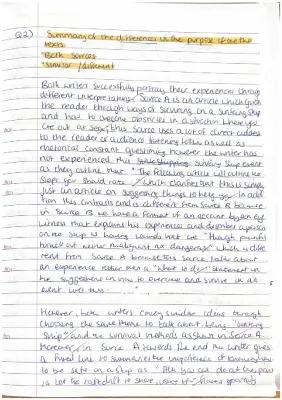 Q2) Summary of the differences in the purpose of the two
texts
*Both Sources
*Similar / different
Both writers successfully portray their experiences through
different interpretations. Source A is an article which gives
the reader through ways of surviving on a sinking ship
and how to overcome obstacles in a situation where you
are out at sea, this source uses a lot of direct address
to the reader or audience listening to this as well as
rhetorical constant questioning however the writer has
not experienced this sinking ship event
as they outline that "The following article will outline the
steps you should take", which clarifies that this is simply
just an article on suggesting things to help you. In addi
tion this contrasts and is different from Source B because
in Source B we have a format of an account by an eye
witness that explains his experiences and describes a person
on the ship as having wounds that are "though painful
neither malignant nor dangerous" which is diffe
rent from Source A because this source talks about
an experience rather than a "what to do" statement in
the suggestions on how to overcome and survive in an
event like this.
However, both writers convey similar ideas through
choosing the same theme to talk about being "sinking
ship" and the survival methods as shown in Source A.
Moreover, in Source A towards the end the writer gives
a final line to summarise the importance of knowing how
to be safe on a ship as "All you can do at this point
is let the